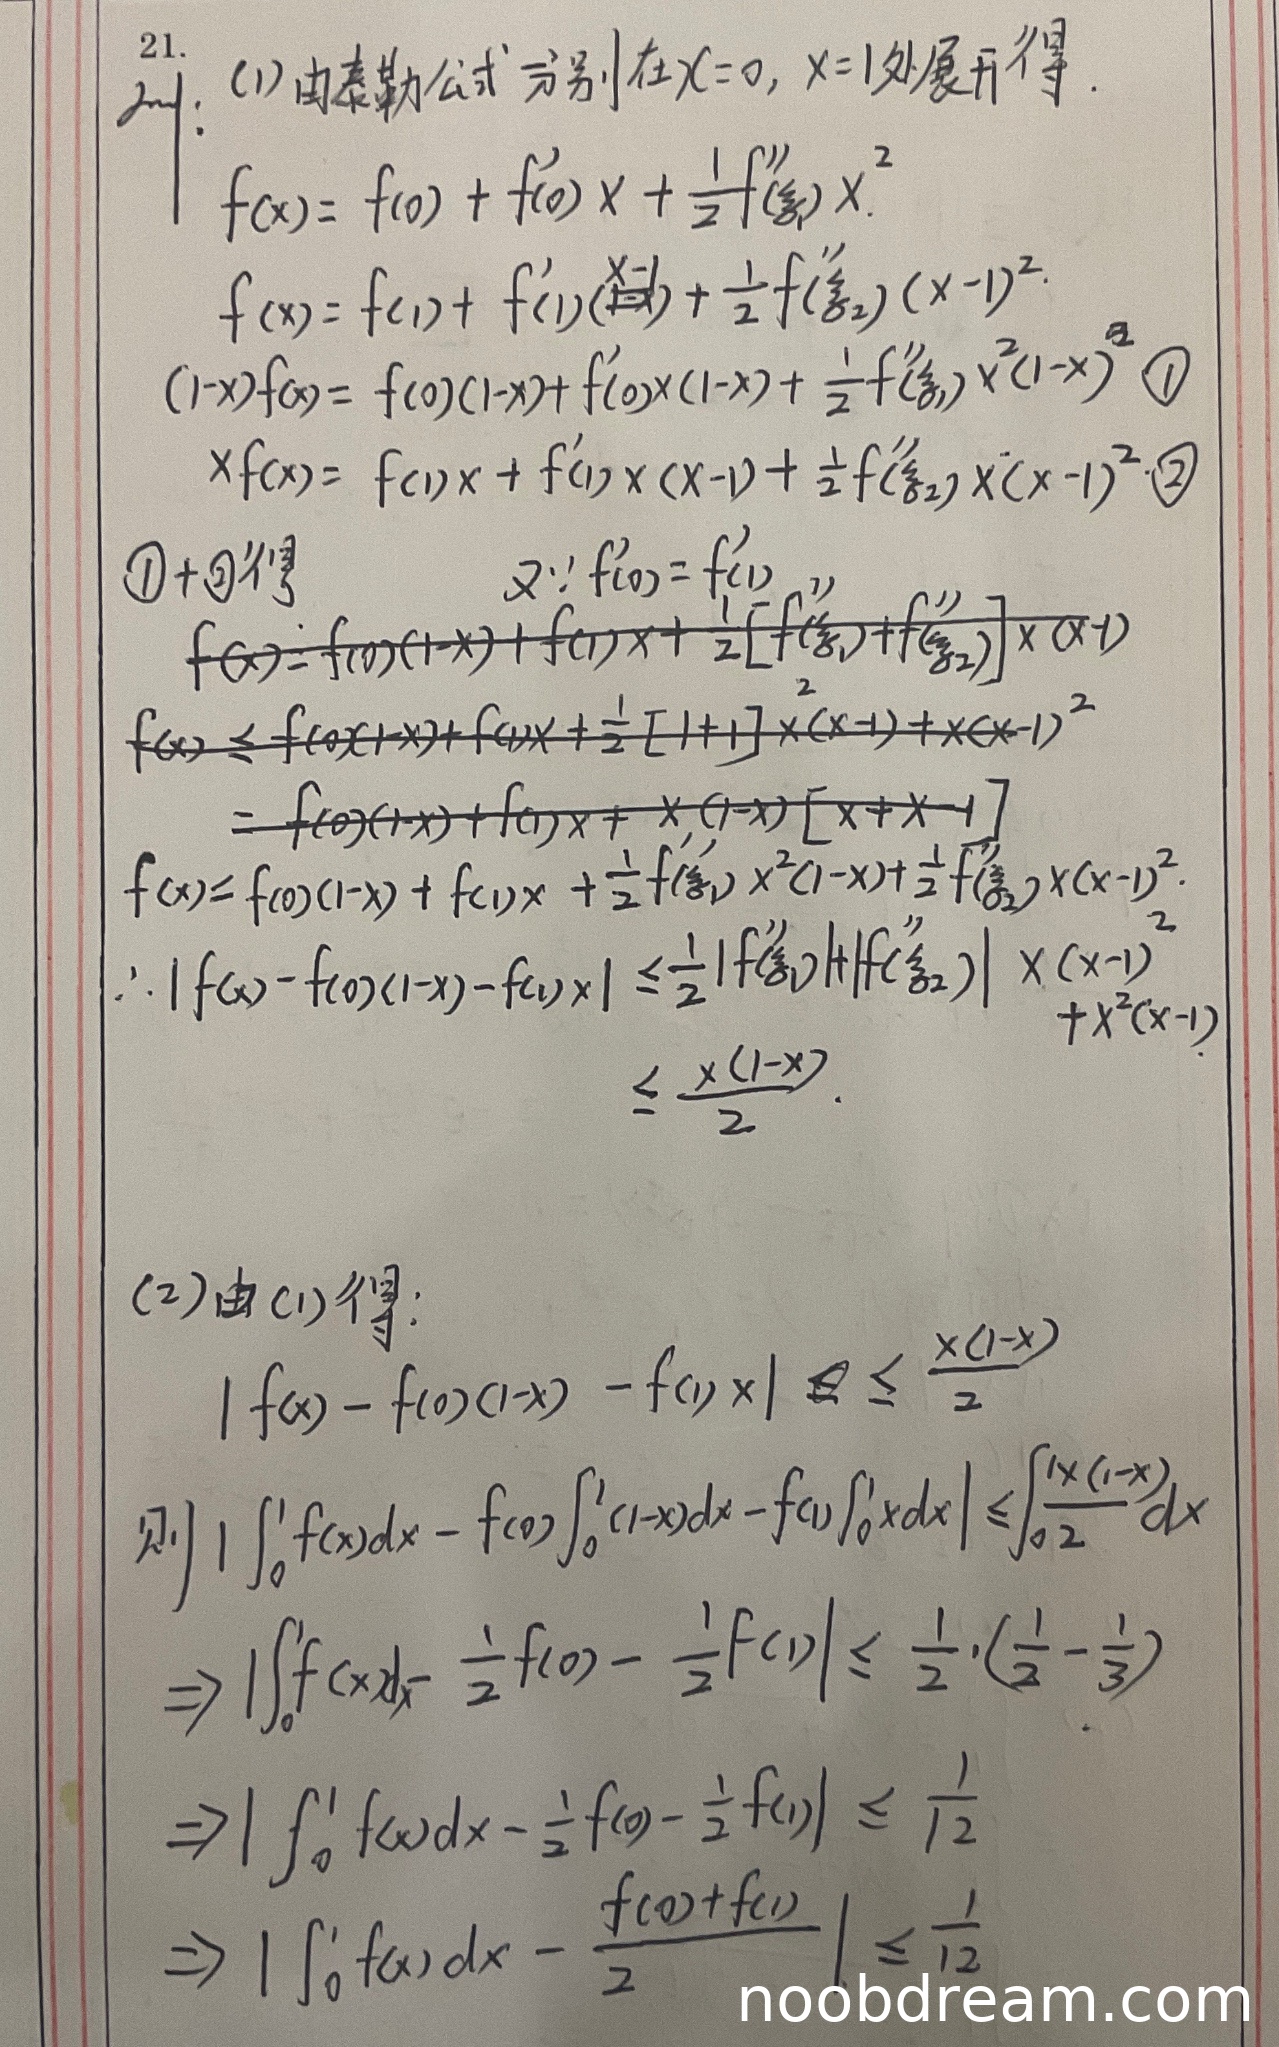 21.
证: (1) 由泰勒公式分别在x=0, x=1处展开得.
f(x) = f(0) + f'(0) x + 1/2 f''(ξ₁) x².
f(x) = f(1) + f'(1)(x-1) + 1/2 f''(ξ₂) (x-1)².
(1-x)f(x) = f(0)(1-x) + f'(0)x(1-x) + 1/2 f''(ξ₁) x²(1-x) ①
xf(x) = f(1)x + f'(1) x (x-1) + 1/2 f''(ξ₂) x (x-1)². ②
①+②得 又∵ f'(0) = f'(1)
f(x) = f(0)(1-x) + f(1)x + 1/2 [f''(ξ₁) + f''(ξ₂)] x (x-1)
f(x) ≤ f(0)(1-x) + f(1)x + 1/2 [1+1] x²(x-1) + x(x-1)²
= f(0)(1-x) + f(1)x + x (1-x) [x+x-1]
f(x) = f(0)(1-x) + f(1)x + 1/2 f''(ξ₁) x²(1-x) + 1/2 f''(ξ₂) x(x-1)².
∴ |f(x) - f(0)(1-x) - f(1)x| ≤ 1/2 |f''(ξ₁)|+|f''(ξ₂)| x (x-1)²
+ x²(x-1).
≤ x(1-x)/2.
(2) 由(1)得:
|f(x) - f(0)(1-x) - f(1)x| ≤ x(1-x)/2
则 |∫₀¹ f(x)dx - f(0)∫₀¹(1-x)dx - f(1)∫₀¹xdx| ≤ ∫₀¹ x(1-x)/2 dx
⇒ |∫₀¹ f(x)dx - 1/2 f(0) - 1/2 f(1)| ≤ 1/2·(1/2 - 1/3).
⇒ |∫₀¹ f(x)dx - 1/2 f(0) - 1/2 f(1)| ≤ 1/12
⇒ |∫₀¹ f(x)dx - (f(0)+f(1))/2| ≤ 1/12
noobdream.com